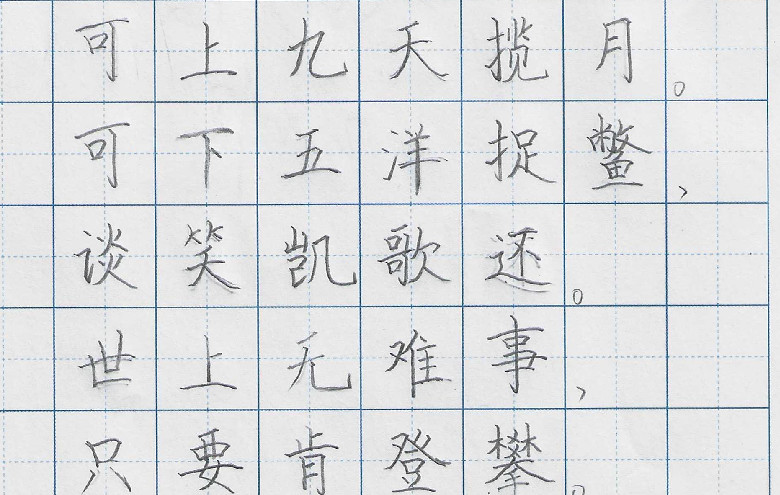 可上九天揽月。
可下五洋捉鳖，
谈笑凯歌还。
世上无难事，
只要肯登攀。